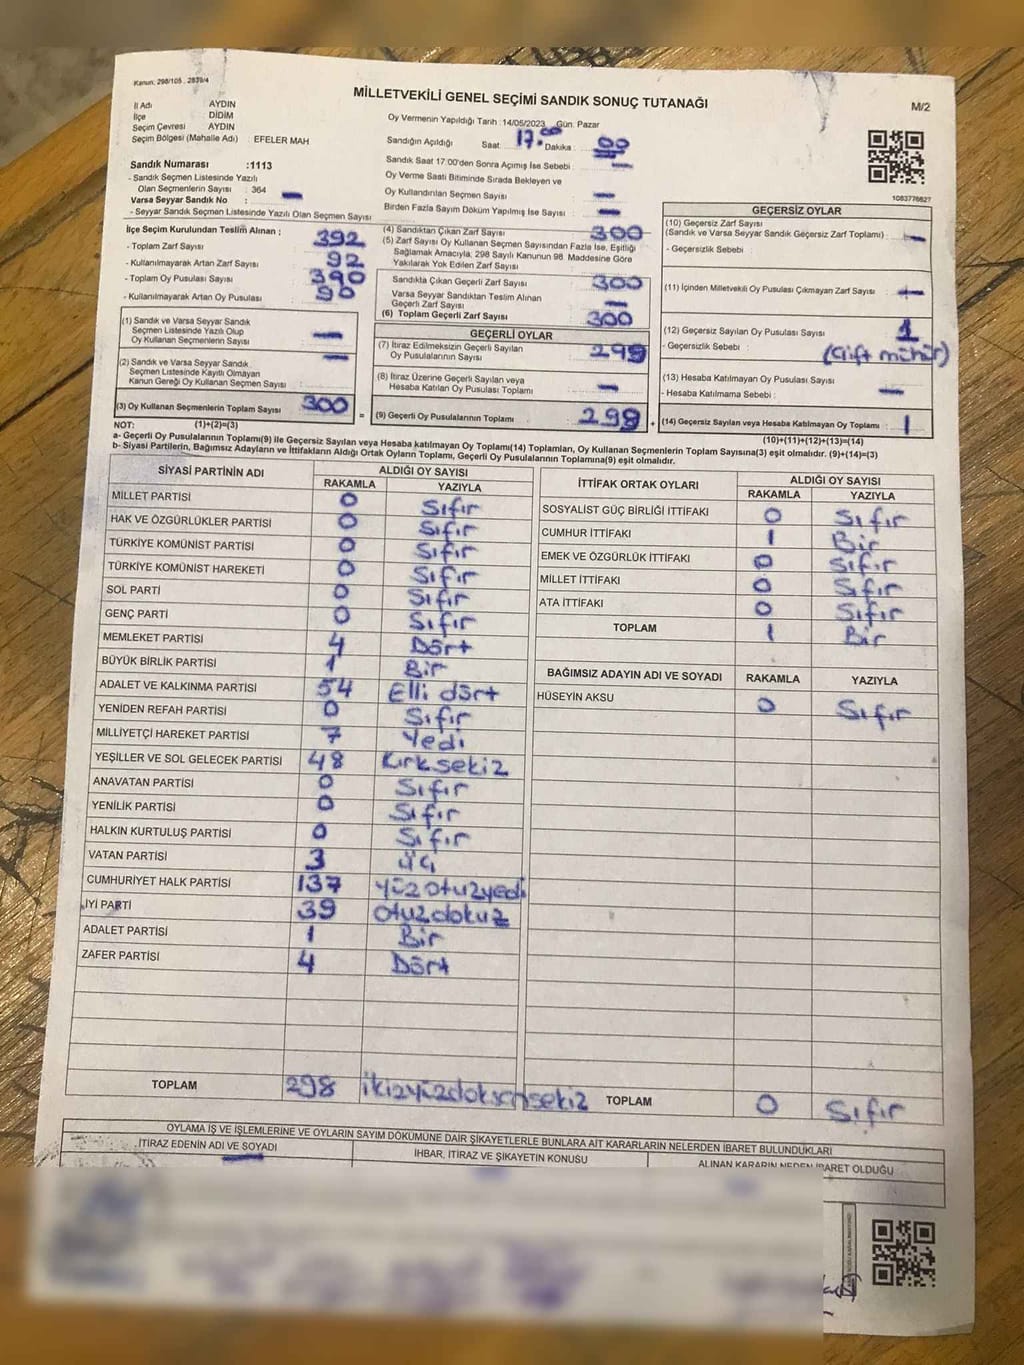 Kanun: 298/105 , 2839/4
MİLLETVEKİLİ GENEL SEÇİMİ SANDIK SONUÇ TUTANAĞI
M/2
İl Adı AYDIN
İlçe DİDİM
Seçim Çevresi AYDIN
Seçim Bölgesi (Mahalle Adı) : EFELER MAH
Sandık Numarası :1113
- Sandık Seçmen Listesinde Yazılı
Olan Seçmenlerin Sayısı : 364
Varsa Seyyar Sandık No : —
- Seyyar Sandık Seçmen Listesinde Yazılı Olan Seçmen Sayısı
Oy Vermenin Yapıldığı Tarih :14/05/2023 Gün. Pazar
Sandığın Açıldığı Saat: 17.00 Dakika : 00
Sandık Saat 17:00'den Sonra Açılmış İse Sebebi : —
Oy Verme Saati Bitiminde Sırada Bekleyen ve
Oy Kullandırılan Seçmen Sayısı : —
Birden Fazla Sayım Döküm Yapılmış İse Sayısı : —
1083776627
İlçe Seçim Kurulundan Teslim Alınan ;
- Toplam Zarf Sayısı : 392
- Kullanılmayarak Artan Zarf Sayısı : 92
- Toplam Oy Pusulası Sayısı : 390
- Kullanılmayarak Artan Oy Pusulası : 90
(1) Sandık ve Varsa Seyyar Sandık
Seçmen Listesinde Yazılı Olup
Oy Kullanan Seçmenlerin Sayısı : —
(2) Sandık ve Varsa Seyyar Sandık
Seçmen Listesinde Kayıtlı Olmayan
Kanun Gereği Oy Kullanan Seçmen Sayısı : —
(3) Oy Kullanan Seçmenlerin Toplam Sayısı 300
(4) Sandıktan Çıkan Zarf Sayısı : 300
(5) Zarf Sayısı Oy Kullanan Seçmen Sayısından Fazla İse, Eşitliği
Sağlamak Amacıyla, 298 Sayılı Kanunun 98. Maddesine Göre
Yakılarak Yok Edilen Zarf Sayısı :
Sandıkta Çıkan Geçerli Zarf Sayısı : 300
Varsa Seyyar Sandıktan Teslim Alınan
Geçerli Zarf Sayısı : —
(6) Toplam Geçerli Zarf Sayısı : 300
GEÇERLİ OYLAR
(7) İtiraz Edilmeksizin Geçerli Sayılan
Oy Pusulalarının Sayısı : 299
(8) İtiraz Üzerine Geçerli Sayılan veya
Hesaba Katılan Oy Pusulası Toplamı : —
= (9) Geçerli Oy Pusulalarının Toplamı : 299
GEÇERSİZ OYLAR
(10) Geçersiz Zarf Sayısı
(Sandık ve Varsa Seyyar Sandık Geçersiz Zarf Toplamı) : —
- Geçersizlik Sebebi :
(11) İçinden Milletvekili Oy Pusulası Çıkmayan Zarf Sayısı : —
(12) Geçersiz Sayılan Oy Pusulası Sayısı : 1
- Geçersizlik Sebebi : (Çift mühür)
(13) Hesaba Katılmayan Oy Pusulası Sayısı
- Hesaba Katılmama Sebebi : —
+ (14) Geçersiz Sayılan veya Hesaba Katılmayan Oy Toplamı : 1
NOT: (1)+(2)=(3)
(10)+(11)+(12)+(13)=(14)
a- Geçerli Oy Pusulalarının Toplamı(9) ile Geçersiz Sayılan veya Hesaba katılmayan Oy Toplamı(14) Toplamları, Oy Kullanan Seçmenlerin Toplam Sayısına(3) eşit olmalıdır. (9)+(14)=(3)
b- Siyasi Partilerin, Bağımsız Adayların ve İttifakların Aldığı Ortak Oyların Toplamı, Geçerli Oy Pusulalarının Toplamına(9) eşit olmalıdır.
SİYASİ PARTİNİN ADI
ALDIĞI OY SAYISI
RAKAMLA YAZIYLA
MİLLET PARTİSİ 0 Sıfır
HAK VE ÖZGÜRLÜKLER PARTİSİ 0 Sıfır
TÜRKİYE KOMÜNİST PARTİSİ 0 Sıfır
TÜRKİYE KOMÜNİST HAREKETİ 0 Sıfır
SOL PARTİ 0 Sıfır
GENÇ PARTİ 0 Sıfır
MEMLEKET PARTİSİ 4 Dört
BÜYÜK BİRLİK PARTİSİ 1 Bir
ADALET VE KALKINMA PARTİSİ 54 Elli dört
YENİDEN REFAH PARTİSİ 0 Sıfır
MİLLİYETÇİ HAREKET PARTİSİ 7 Yedi
YEŞİLLER VE SOL GELECEK PARTİSİ 48 Kırksekiz
ANAVATAN PARTİSİ 0 Sıfır
YENİLİK PARTİSİ 0 Sıfır
HALKIN KURTULUŞ PARTİSİ 0 Sıfır
VATAN PARTİSİ 3 üç
CUMHURİYET HALK PARTİSİ 137 yüzotuzyedi
İYİ PARTİ 39 otuzdokuz
ADALET PARTİSİ 1 Bir
ZAFER PARTİSİ 4 Dört
TOPLAM 298 ikiyüzdoksansekiz
İTTİFAK ORTAK OYLARI
ALDIĞI OY SAYISI
RAKAMLA YAZIYLA
SOSYALİST GÜÇ BİRLİĞİ İTTİFAKI 0 Sıfır
CUMHUR İTTİFAKI 1 Bir
EMEK VE ÖZGÜRLÜK İTTİFAKI 0 Sıfır
MİLLET İTTİFAKI 0 Sıfır
ATA İTTİFAKI 0 Sıfır
TOPLAM 1 Bir
BAĞIMSIZ ADAYIN ADI VE SOYADI RAKAMLA YAZIYLA
HÜSEYİN AKSU 0 Sıfır
TOPLAM 0 Sıfır
OYLAMA İŞ VE İŞLEMLERİNE VE OYLARIN SAYIM DÖKÜMÜNE DAİR ŞİKAYETLERLE BUNLARA AİT KARARLARIN NELERDEN İBARET BULUNDUKLARI
İTİRAZ EDENİN ADI VE SOYADI
İHBAR, İTİRAZ VE ŞİKAYETİN KONUSU
ALINAN KARARIN NEDEN İBARET OLDUĞU